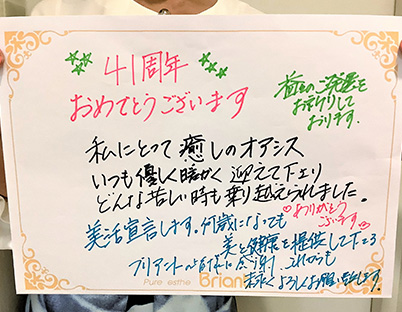 41周年
おめでとうございます
益々のご発展を
お祈りして
おります.
私にとって癒しのオアシス
いつも優しく暖かく迎えて下さり
どんな苦しい時も乗り越えられました。
ありがとう
ございます
美活宣言します。何歳になっても
美と健康を提供して下さる
ブリアントの皆様に感謝 これからも
末永くよろしくお願い致します.
Pure esthe Brian